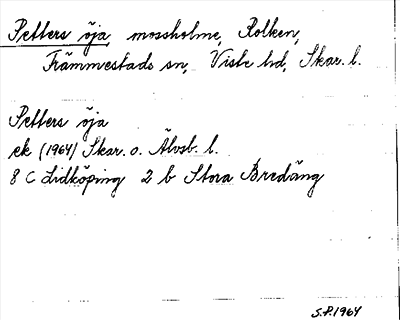 Petters öja, mossholme, Rolken,
Främmestads sn, Viste hd, Skar. l.
Petters öja
ek (1964) Skar. o. Älvsb. l.
8 C Lidköping 2 b Stora Bredäng
S.P. 1964